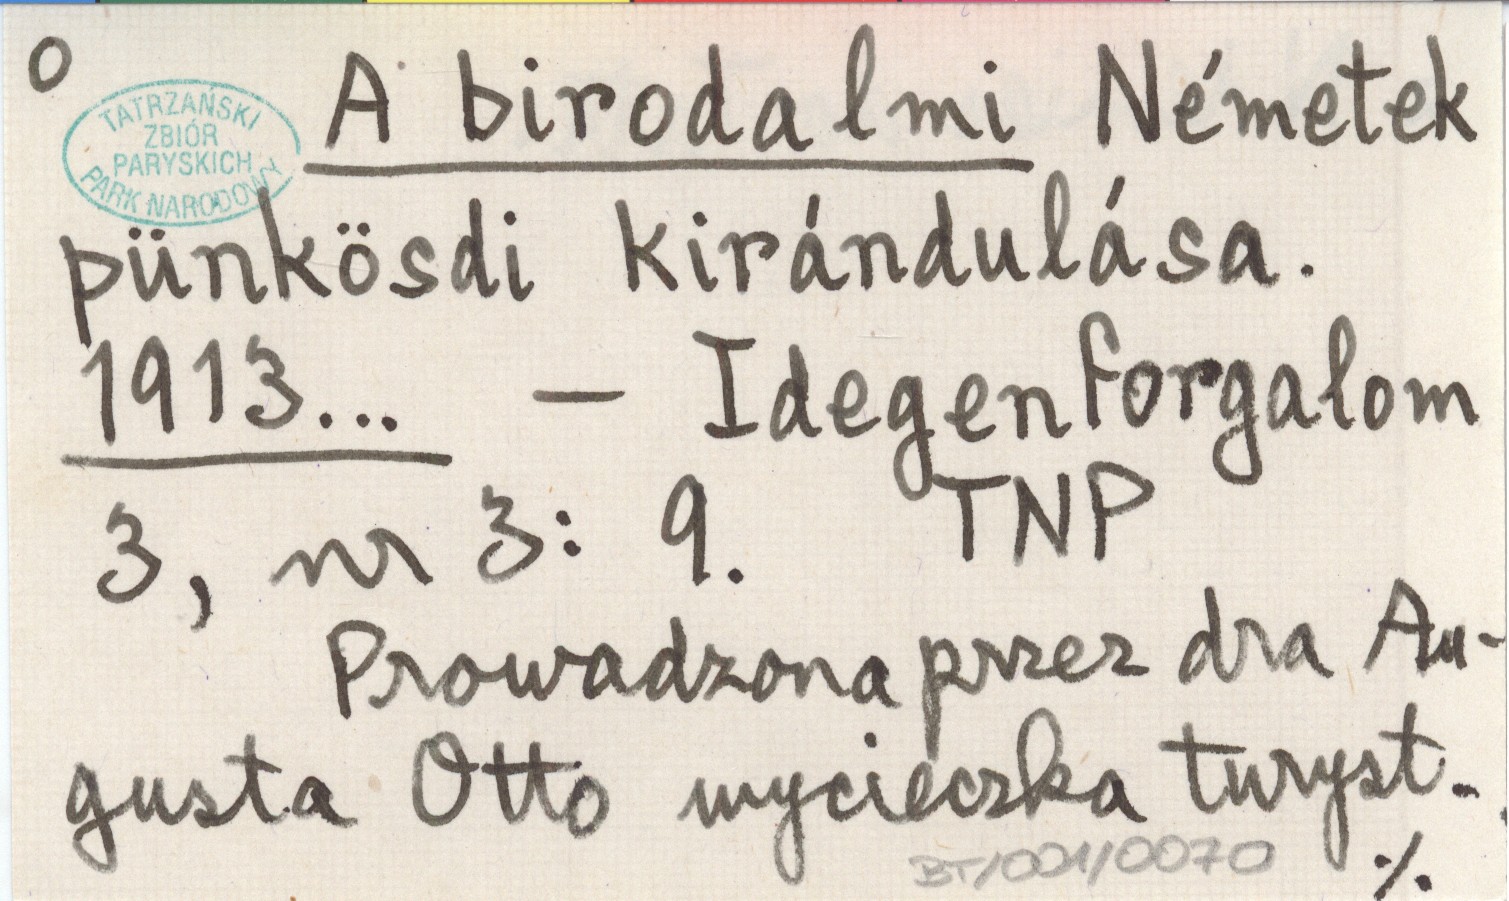 O
TATRZAŃSKI
ZBIÓR
PARYSKICH
PARK NARODOWY
A birodalmi Németek
pünkösdi kirándulása.
1913... — Idegenforgalom
3, nr 3: 9. TNP
Prowadzona przez dra Au-
gusta Otto wycieczka turyst.
BT/001/0070 ./.